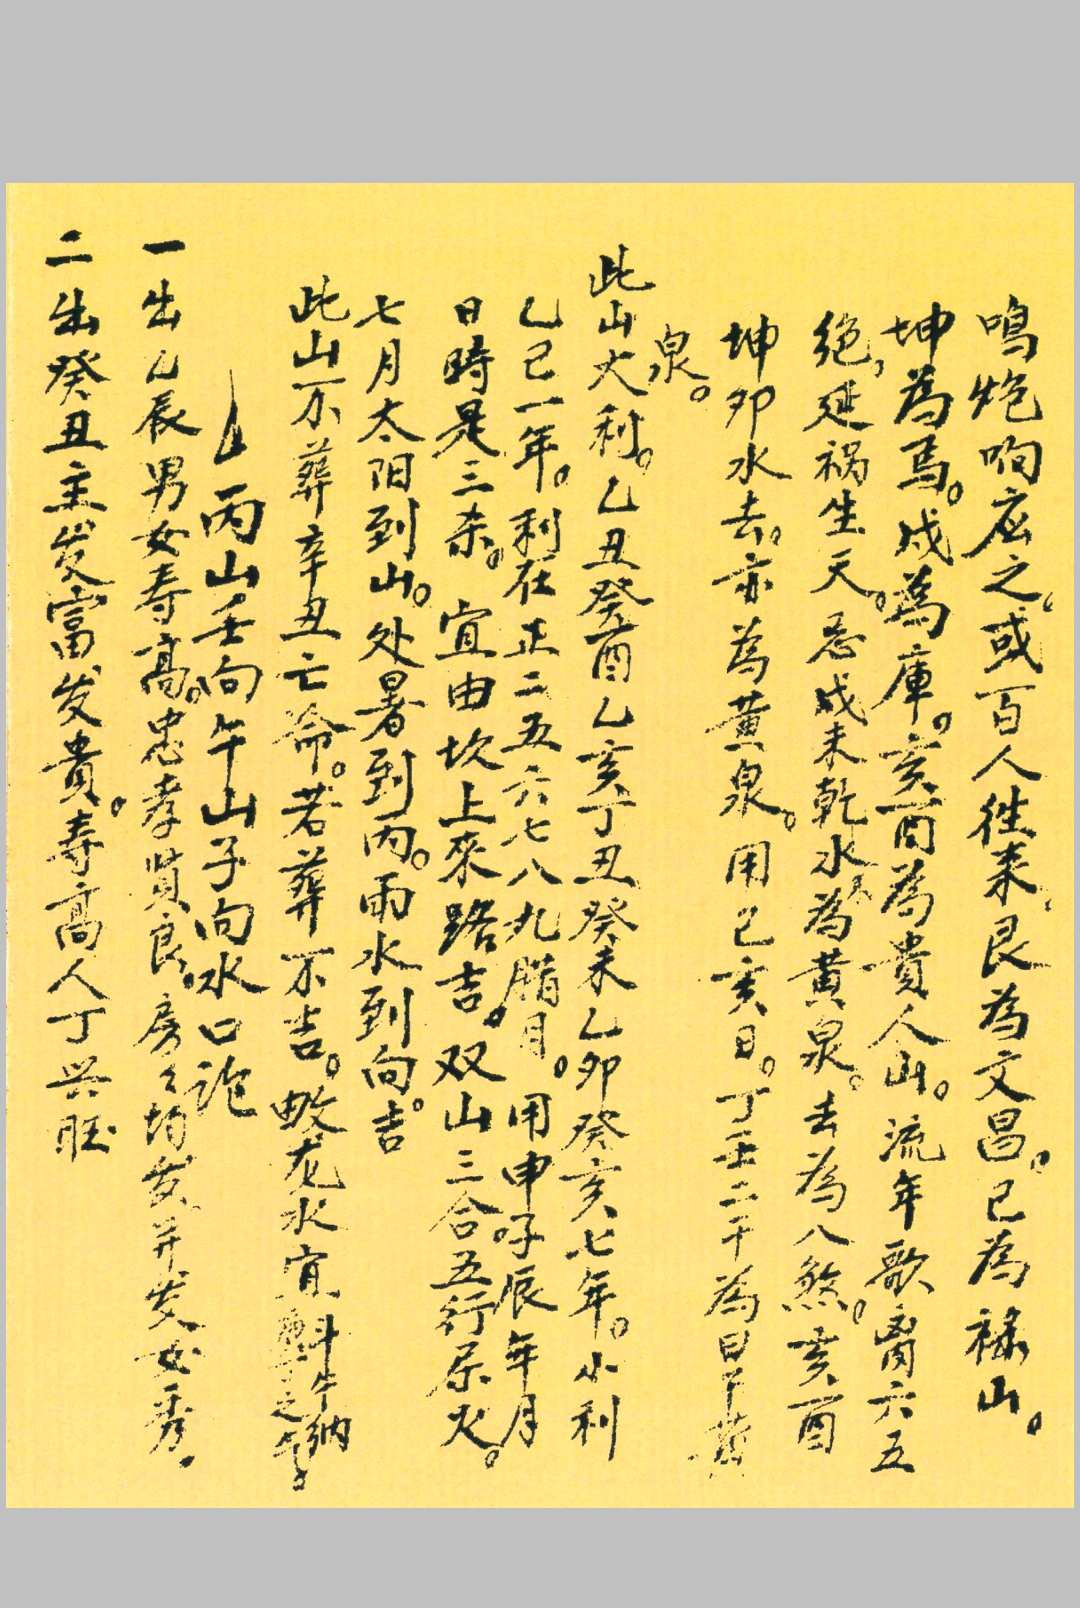 鳴炮响应之。或百人往来、艮為文昌。巳為禄山。
坤為馬。戌為庫。亥酉為貴人山。流年歌离六五
绝，延祸生天。忌戌未乾水來為黄泉。去為八煞。亥酉
坤卯水去。亦為黄泉。用己亥日。丁壬二干為日干黄
泉。
此山大利。乙丑癸酉乙亥丁丑癸未乙卯癸亥七年。小利
乙巳一年。利在正二五六七八九腊月。用申子辰年月
日時是三杀。宜由坎上來路吉。双山三合五行属火。
七月太阳到山。处暑到丙。雨水到向。吉
此山不葬辛丑亡命。若葬不吉。龙水宜斗牛纳之吉。
丙山壬向午山子向水口论
一出乙辰男女寿高。忠孝賢良。房々均发并发女秀。
二出癸丑主发富发貴。寿高人丁兴旺